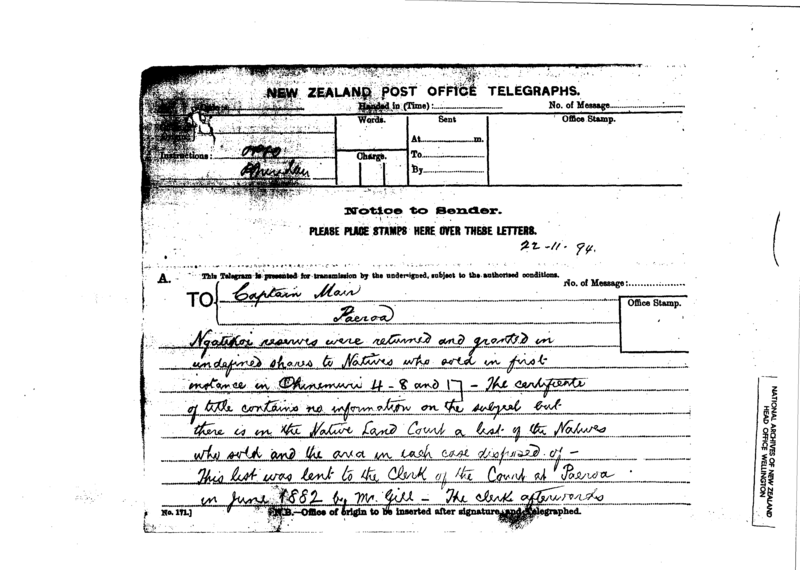 NEW ZEALAND POST OFFICE TELEGRAPHS.
Handed in (Time):
No. of Message
Words.
Sent
Office Stamp.
At m.
Instructions:
Charge.
To
By
Notice to Sender.
PLEASE PLACE STAMPS HERE OVER THESE LETTERS.
22-11-94.
A.
This Telegram is presented for transmission by the undersigned, subject to the authorised conditions.
No. of Message:
TO Captain Mair
Office Stamp.
Paeroa
Ngatikoi reserves were returned and granted in
undefined shares to Natives who sold in first
instance in Ohinemuri 4-8 and 17 – The certificate
of title contains no information on the subject but
there is in the Native Land Court a list of the Natives
who sold and the area in each case disposed of –
This list was lent to the Clerk of the Court at Paeroa
in June 1882 by Mr. Gill – The clerk afterwards
No. 171.]
N.B.—Office of origin to be inserted after signature and Telegraphed.
NATIONAL ARCHIVES OF NEW ZEALAND
HEAD OFFICE WELLINGTON